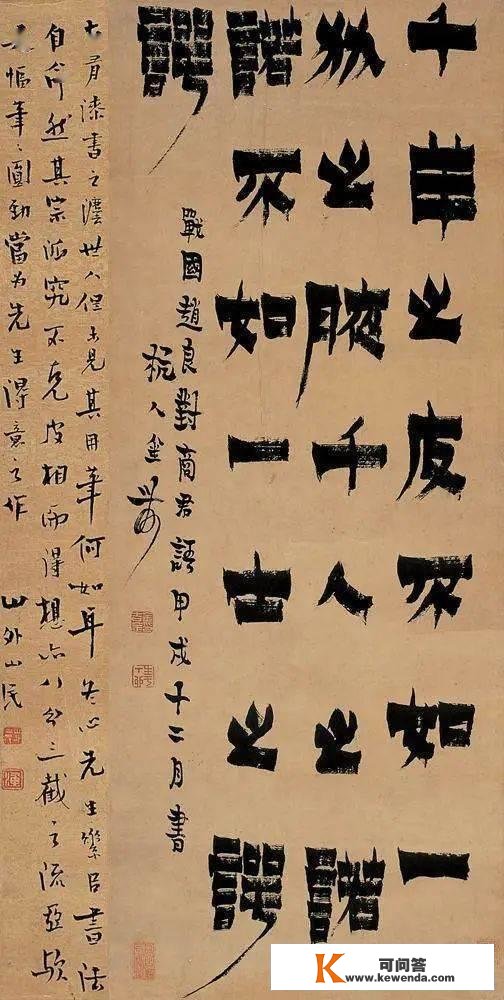 千羊之皮不如一
狐之腋千人之諾
諾不如一士之諤
諤
戰國趙良對商君語甲戌十二月書
杭人金農
古有漆書之世人未見其用筆何如耳冬心先生書法
自命然其宗派究不克皮相而得想亦八分三截之流亞歟
幅筆〻圓勁當为先生得意之作
山外山民
K 可问答
www.kewenda.com